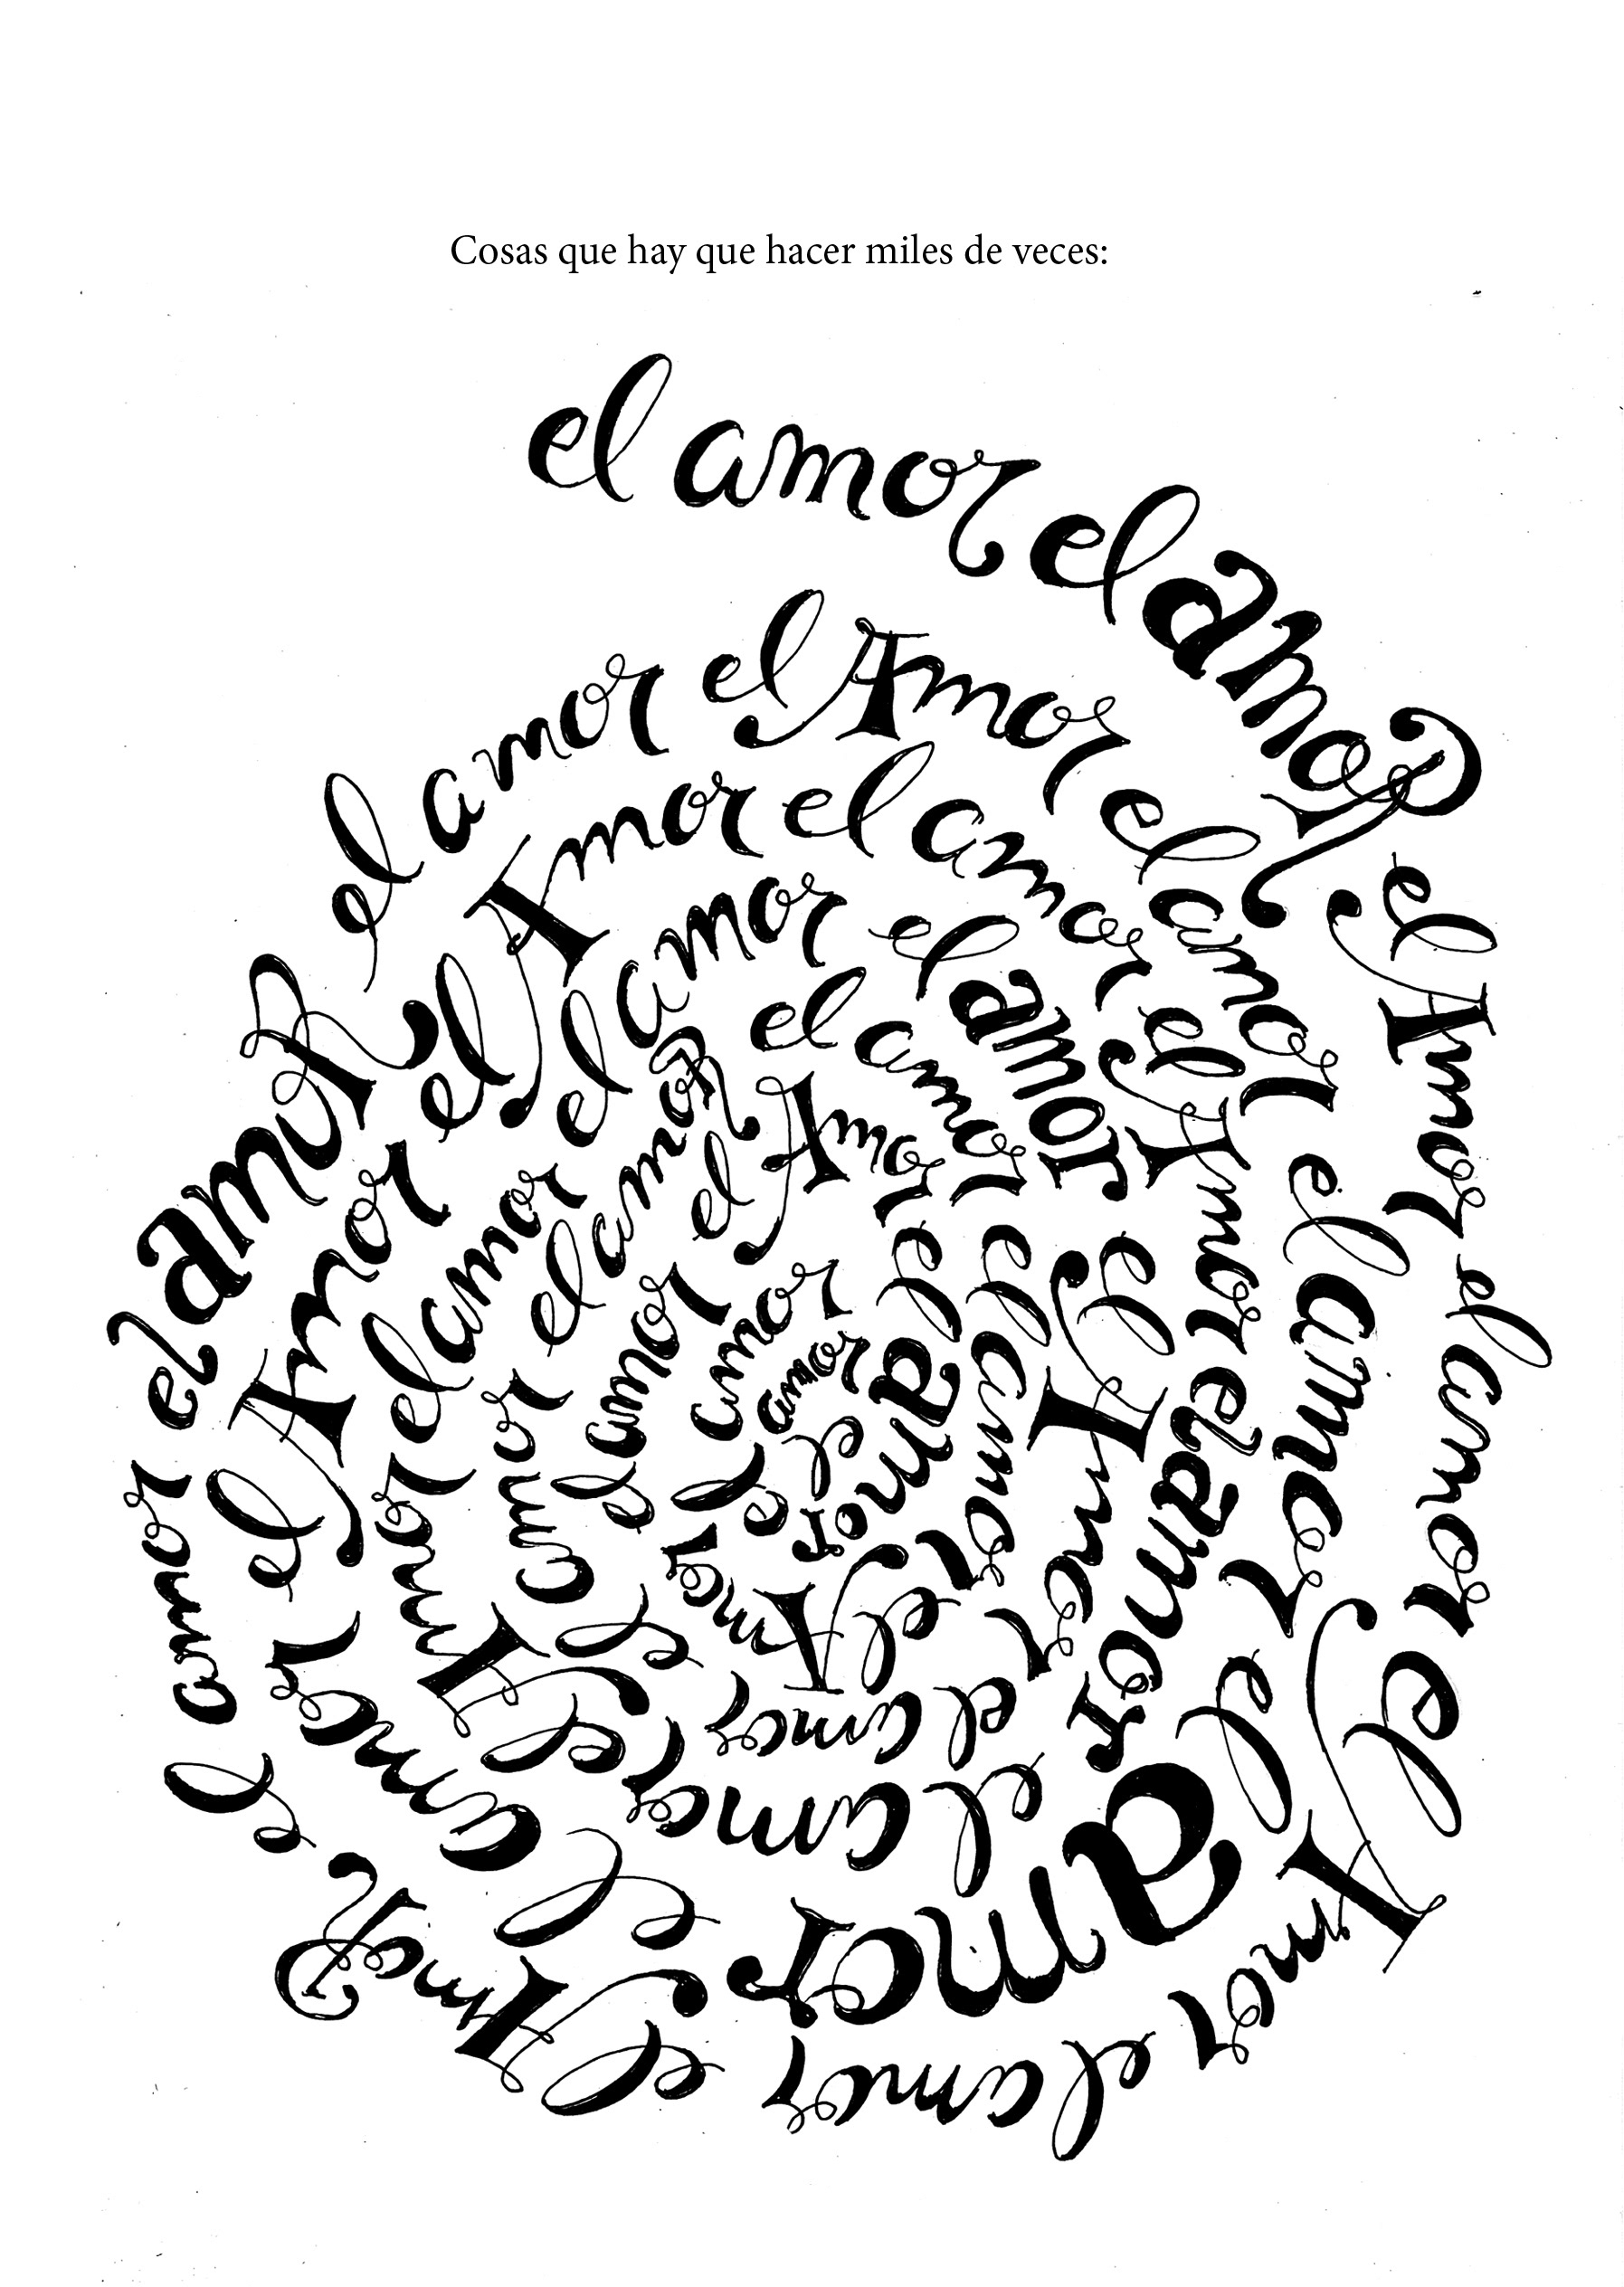 Cosas que hay que hacer miles de veces:
el amor
el amor
el Amor
el amor
el Amor
el amor
el Amor
el amor
el amoR
el amor
el Amor
el amor
el amor
el amor
el amor
el Amor
el Amor
el amor
el Amor
el amor
el amor
el Amor
el amor
el amor
el amor
el Amor
el amor
el amor
el amor
el amor
el amor
el Amor
el amor
el Amor
el amor
el amor
el amor